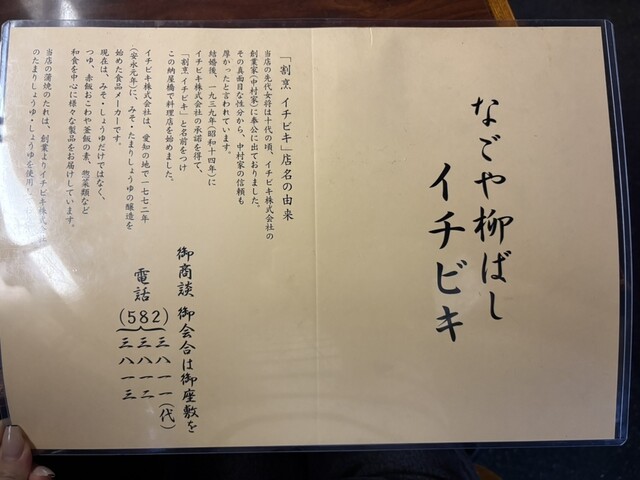 なごや柳ばし
イチビキ
「割烹 イチビキ」店名の由来
当店の先代女将は十代の頃、イチビキ株式会社の
創業家(中村家)に奉公に出ておりました。
その真面目な性分から、中村家の信頼も
厚かったと言われています。
結婚後、一九三九年(昭和十四年)に
イチビキ株式会社の承諾を得て、
「割烹 イチビキ」と名前をつけ
この納屋橋で料理店を始めました。
イチビキ株式会社は、愛知の地で一七七二年
(安永元年)に、みそ・たまりしょうゆの醸造を
始めた食品メーカーです。
現在は、みそ・しょうゆだけではなく、
つゆ、赤飯おこわや釜飯の素、惣菜類など
和食を中心に様々な製品をお届けしています。
当店の蒲焼のたれは、創業よりイチビキ株
のたまりしょうゆ・しょうゆを使用
御商談 御会合は御座敷を
電話 (582) 三八一一(代)
三八一二
三八一三